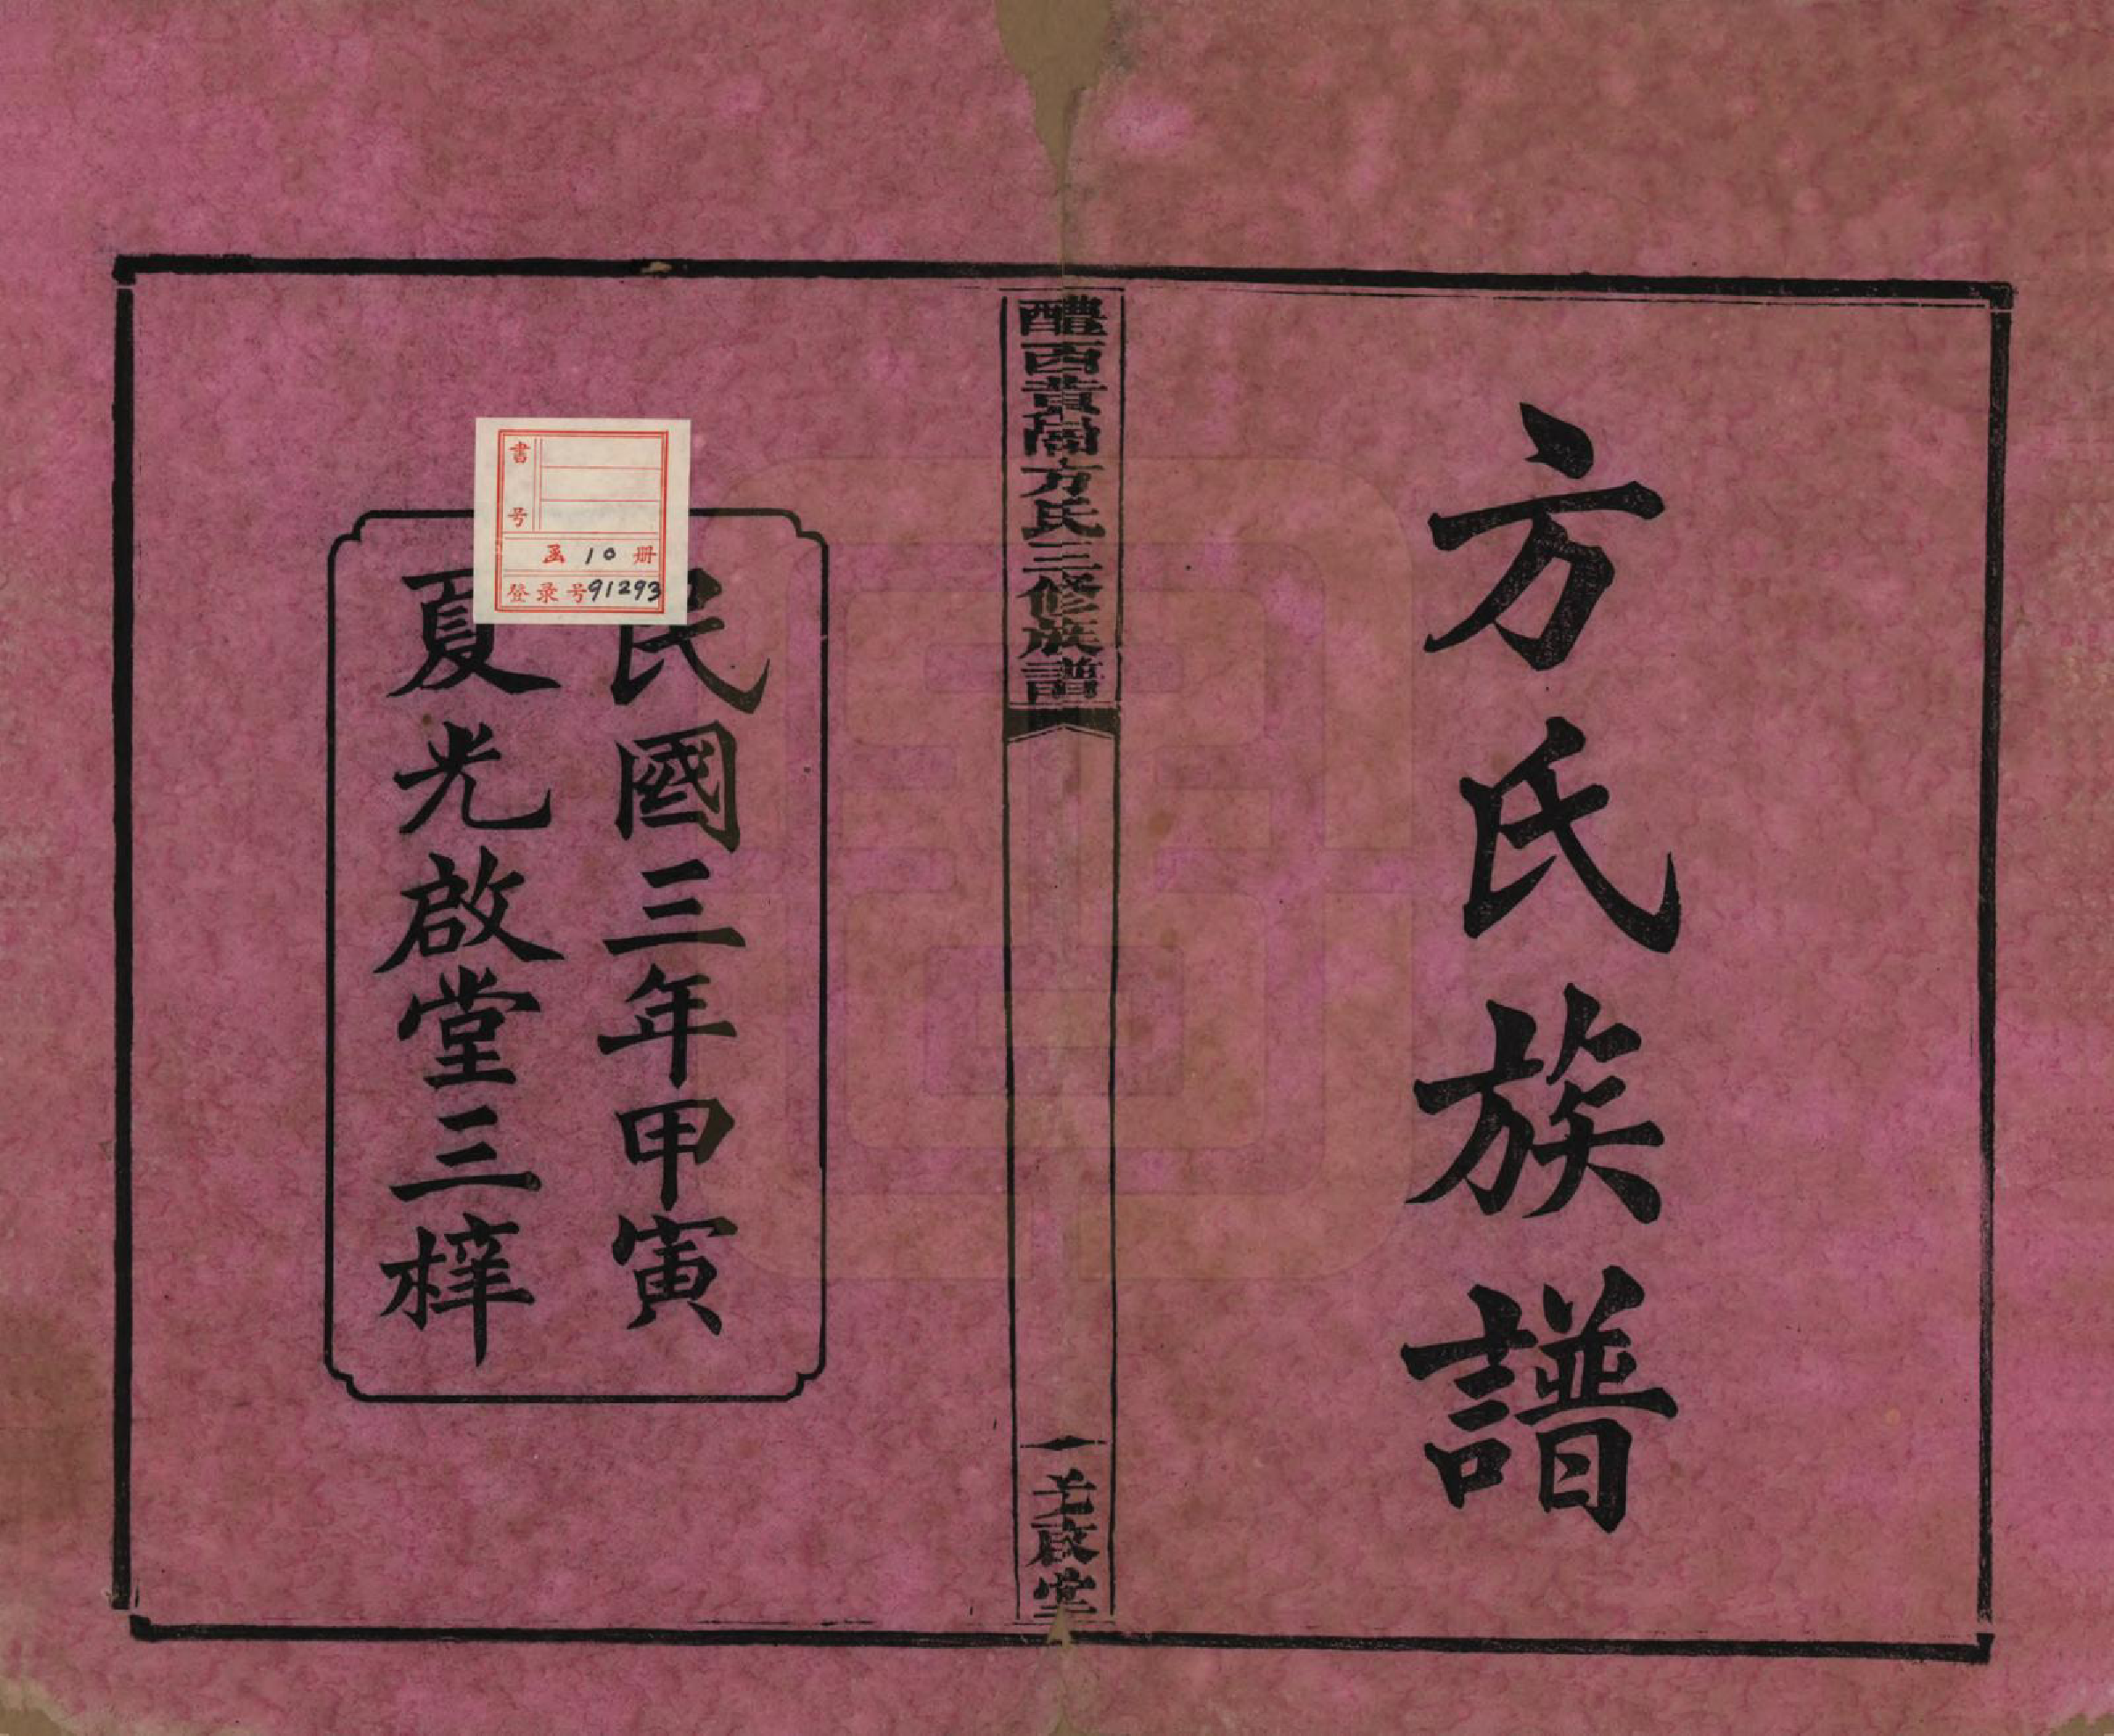 方氏族譜
醴西黄閣方氏三修族譜
一
光啟堂
民國三年甲寅
夏光啟堂三梓
書号
函10册
登录号91293